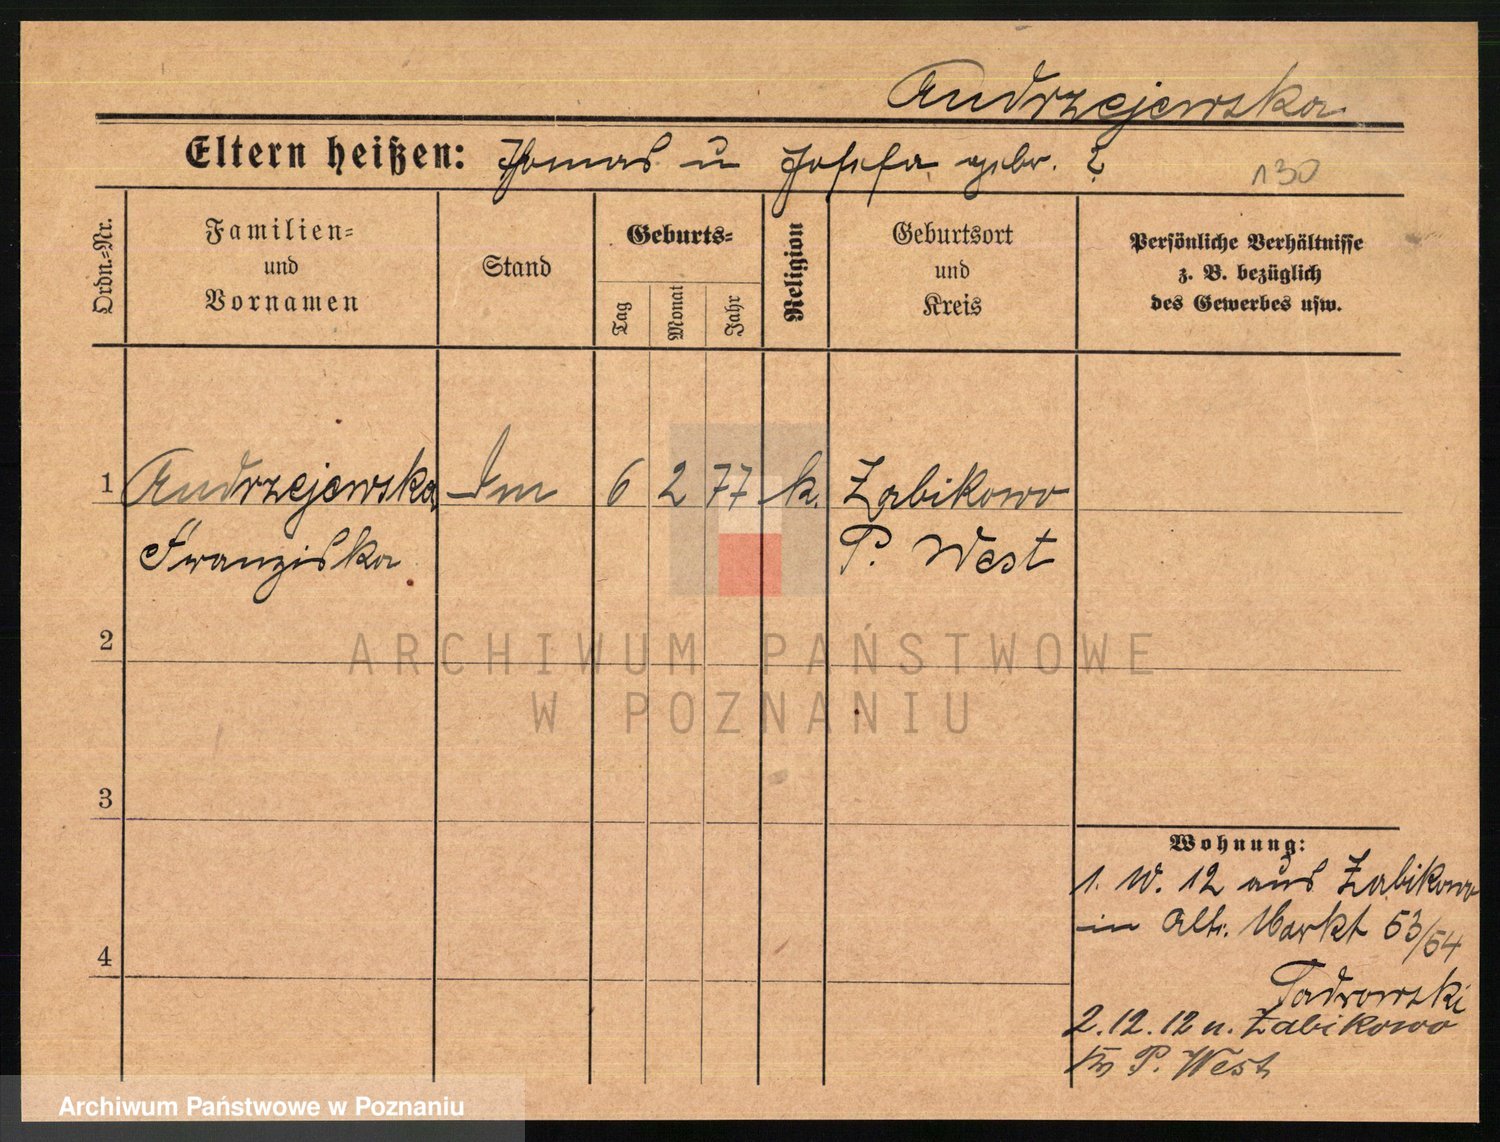 Andrzejewska
Eltern heißen: Thomas u Josefa gebr. ?
130
Ordn.=Nr.
Familien=
und
Vornamen
Stand
Geburts=
Tag
Monat
Jahr
Religion
Geburtsort
und
Kreis
Persönliche Verhältnisse
z. B. bezüglich
des Gewerbes usw.
1 Andrzejewska 6 2 77 k. Żabikowo
Franziska P. West
2
ARCHIWUM PAŃSTWOWE
W POZNANIU
3
Wohnung:
1. 10. 12 aus Żabikowo
in Alt. Markt 53/54
4
Tadrowski
2.12.12 n. Żabikowo
Kr P. West
Archiwum Państwowe w Poznaniu